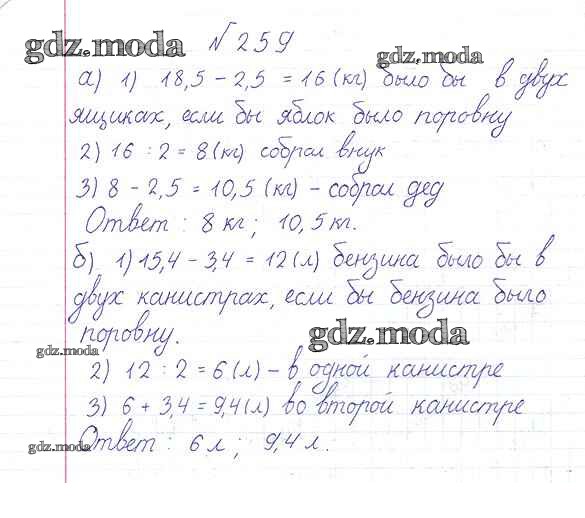 gdz.moda № 259 gdz.moda
а) 1) 18,5 - 2,5 = 16 (кг) было бы в двух
ящиках, если бы яблок было поровну
2) 16 : 2 = 8 (кг) собрал внук
3) 8 - 2,5 = 10,5 (кг) - собрал дед
Ответ : 8 кг ; 10,5 кг.
б) 1) 15,4 - 3,4 = 12 (л) бензина было бы в
двух канистрах, если бы бензина было
поровну. gdz.moda
gdz.moda
2) 12 : 2 = 6 (л) - в одной канистре
3) 6 + 3,4 = 9,4 (л) во второй канистре
gdz.moda Ответ : 6 л ; 9,4 л.